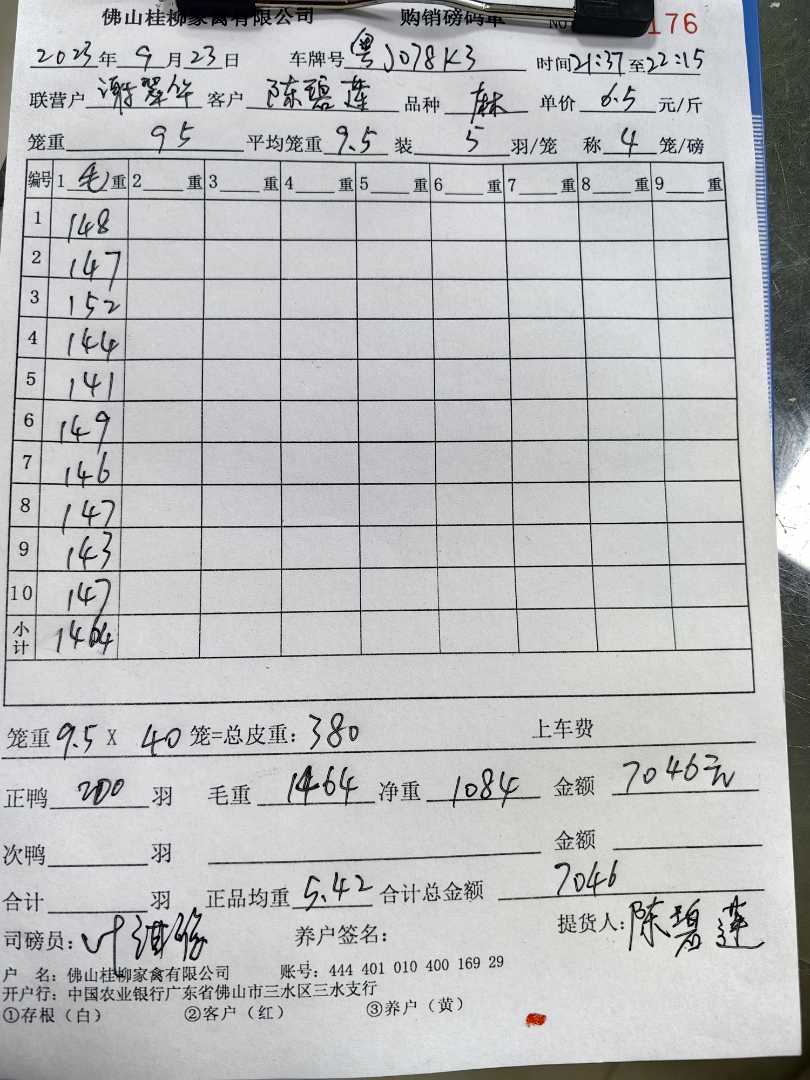 佛山桂柳家禽有限公司 购销磅码单 NO 176
2023年9月23日 车牌号粤J078K3 时间21:37至22:15
联营户谢翠华 客户陈碧莲 品种麻 单价6.5元/斤
笼重95 平均笼重9.5 装5羽/笼 称4笼/磅
编号 1毛重 2重 3重 4重 5重 6重 7重 8重 9重
1 148
2 147
3 152
4 144
5 141
6 149
7 146
8 147
9 143
10 147
小计 1464
笼重9.5X40笼=总皮重:380 上车费
正鸭200羽 毛重1464净重1084 金额7046元
次鸭羽 金额
合计羽 正品均重5.42 合计总金额7046
司磅员:叶 养户签名: 提货人:陈碧莲
户 名:佛山桂柳家禽有限公司 账号:444 401 010 400 169 29
开户行:中国农业银行广东省佛山市三水区三水支行
①存根(白) ②客户(红) ③养户(黄)